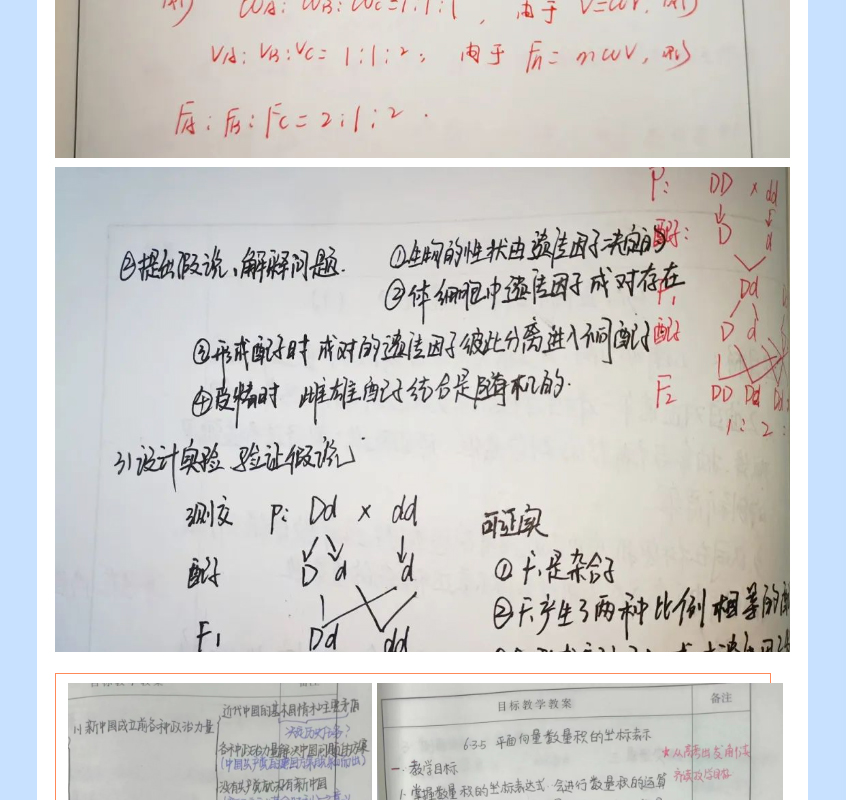 ωA: ωB: ωC=1:1:1, 由于 V=ωr, 则
VA: VB: VC= 1:1:2, 由于 Fn= mωV, 则
FA: FB: FC= 2:1:2.
P: DD × dd
配子: D d
F1 Dd
配子 D d
F2 DD Dd Dd
1: 2:
②提出假说、解释问题.
①生物的性状由遗传因子决定的
②体细胞中遗传因子成对存在
③形成配子时 成对的遗传因子彼此分离进入不同配子
④受精时 雌雄配子结合是随机的.
3)设计实验 验证假说
测交 P: Dd × dd
配子 D d d
F1 Dd dd
可证实
① F1是杂合子
② F1产生了两种比例相等的
目标教学教案 备注
1) 新中国成立前各种政治力量
近代中国的基本国情和主要矛盾
各种政治力量解决中国问题的方案
没有共产党就没有新中国
目标教学教案 备注
6.3.5 平面向量数量积的坐标表示
一. 教学目标
1. 掌握数量积的坐标表达式, 会进行数量积的运算